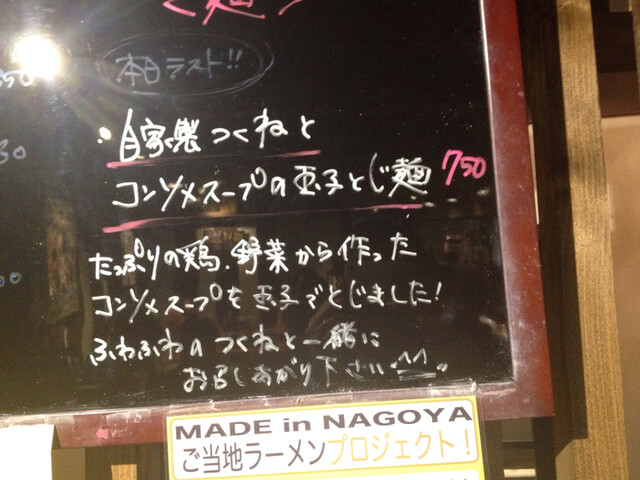 本日ラスト!!
・自家製つくねと
コンソメスープの玉子とじ麺 750
たっぷりの鶏、野菜から作った
コンソメスープを玉子でとじました!
ふわふわのつくねと一緒に
お召しあがり下さい^^
MADE in NAGOYA
ご当地ラーメンプロジェクト!